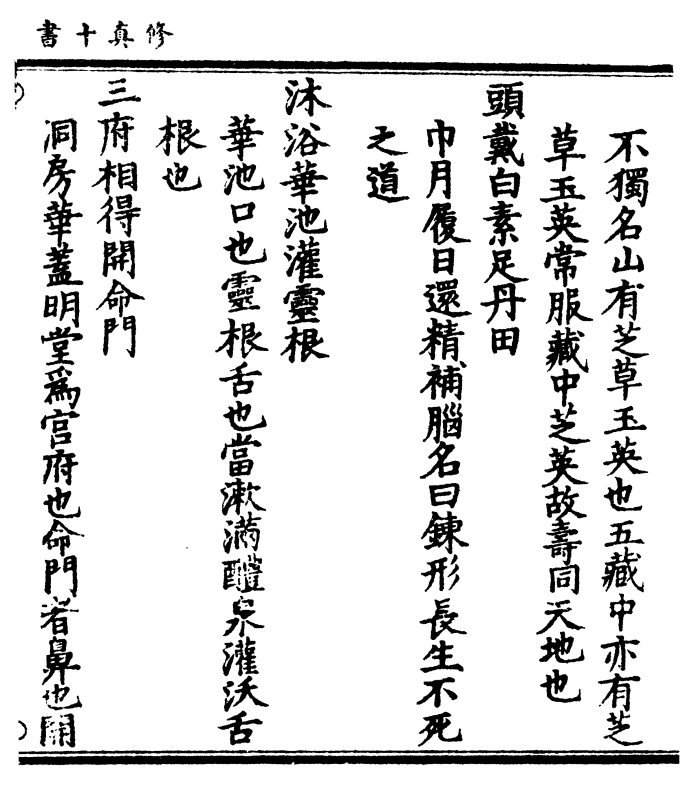 修真十書
不獨名山有芝草玉英也五藏中亦有芝
草玉英常服藏中芝英故壽同天地也
頭戴白素足丹田
巾月履日還精補腦名曰鍊形長生不死
之道
沐浴華池灌靈根
華池口也靈根舌也當漱滿醴泉灌沃舌
根也
三府相得開命門
洞房華蓋明堂爲宫府也命門者鼻也開